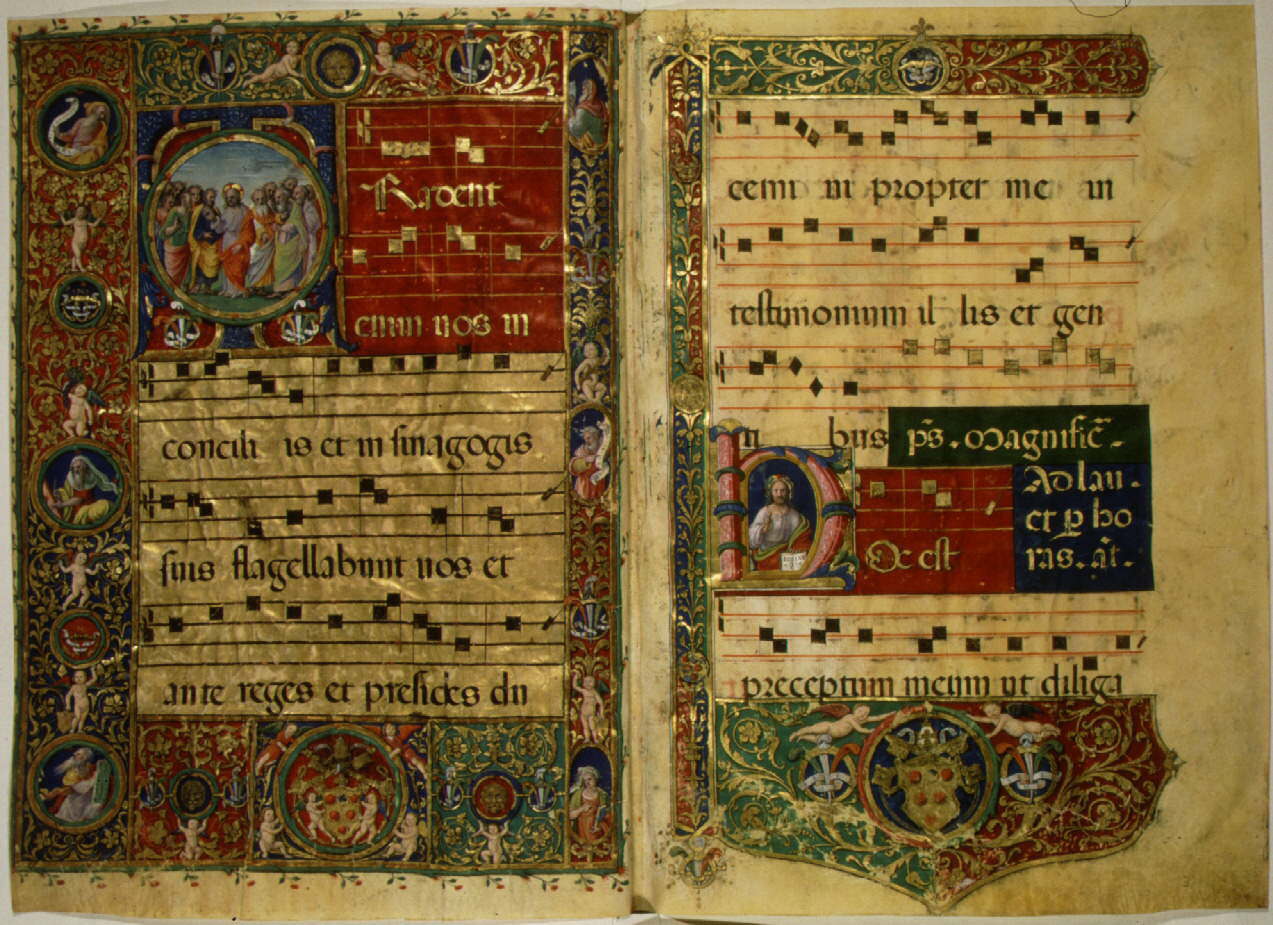 TRadent
enim uos in
concili is et in sinagogis
suis flagellabunt uos et
ante reges et presides du
cemi ni propter me in
testimonium il lis et gen
ti bus ps̄. Magnific̄.
Ad lau.
et ꝑ ho
ras. an̄t.
HOc est
preceptum meum ut diliga